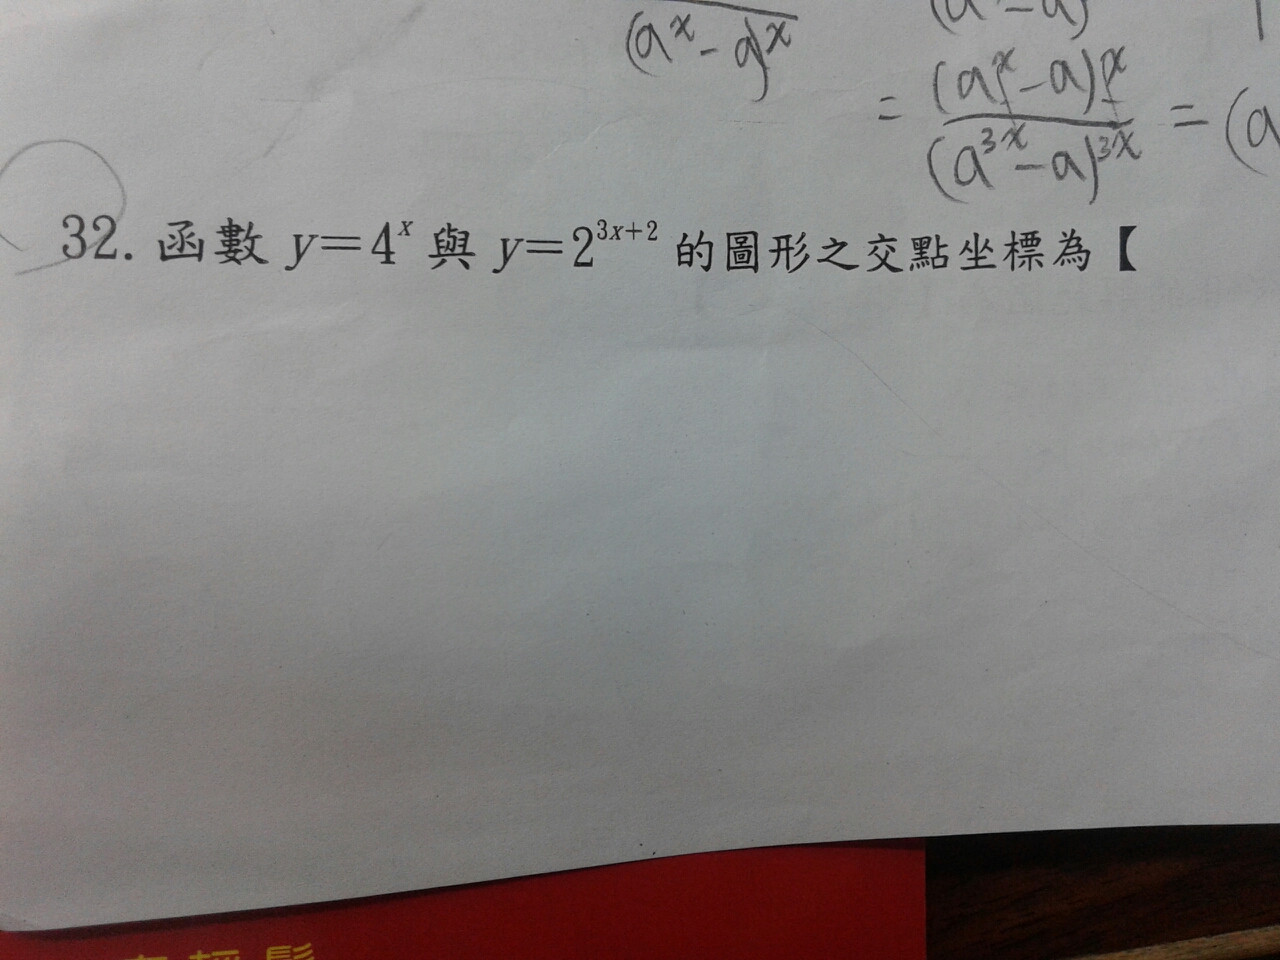 (a^x - a)^x
= (a^x - a)^x / (a^{3x} - a)^{3x} = (a
32. 函數 y=4^x 與 y=2^{3x+2} 的圖形之交點坐標為【
輕鬆